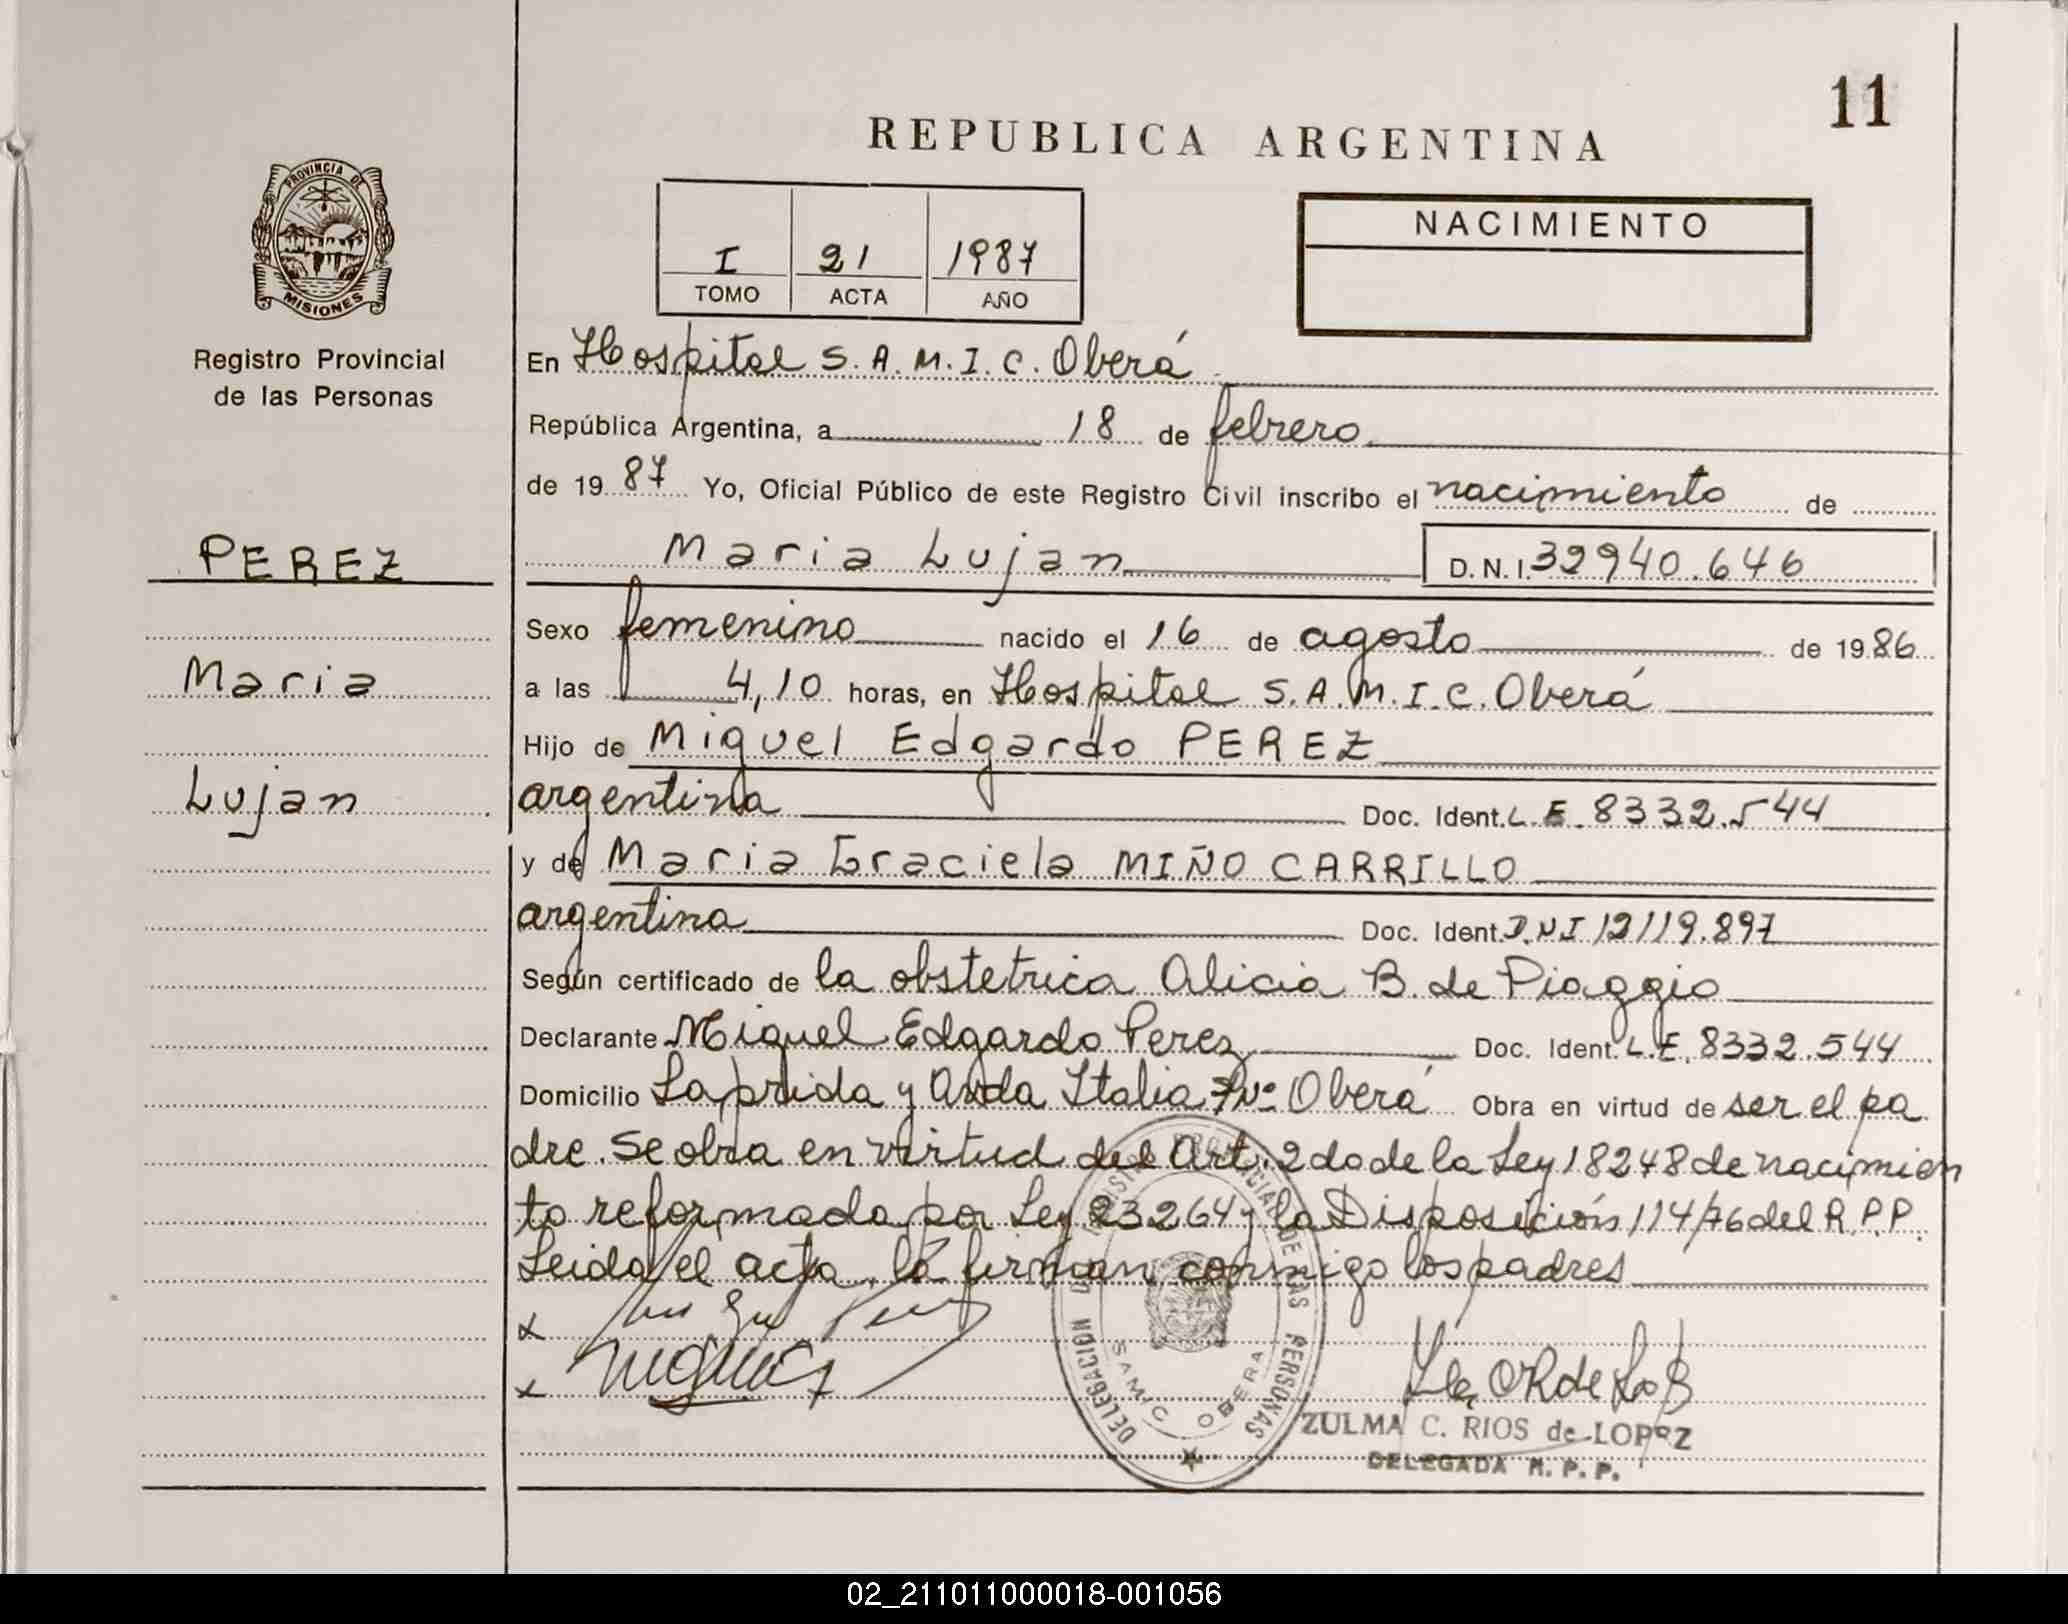 11
REPUBLICA ARGENTINA
PROVINCIA DE
MISIONES
Registro Provincial
de las Personas
I 21 1987
TOMO ACTA AÑO
NACIMIENTO
En Hospital S.A.M.I.C. Oberá
República Argentina, a 18 de febrero
de 1987 Yo, Oficial Público de este Registro Civil inscribo el nacimiento de
PEREZ
Maria Lujan D.N.I. 32940.646
Sexo femenino nacido el 16 de agosto de 1986
Maria
a las 4,10 horas, en Hospital S.A.M.I.C. Oberá
Hijo de Miguel Edgardo PEREZ
Lujan
argentina Doc. Ident. L.E. 8332.544
y de Maria Graciela MIÑO CARRILLO
argentina Doc. Ident. D.N.I 12119.897
Según certificado de la obstetrica Alicia B. de Piaggio
Declarante Miguel Edgardo Perez Doc. Ident. L.E. 8332 544
Domicilio Laprida y Avda Italia Oberá Obra en virtud de ser el pa
dre. Se obra en virtud del Art. 2do de la Ley 18248 de nacimien
to reformada por Ley 23264 y la Disposición 114/76 del R.P.P.
Leida el acta, la firman conmigo los padres
DELEGACION
SAMIC OBERA
ZULMA C. RIOS de LOPEZ
DELEGADA R. P. P.
02_211011000018-001056